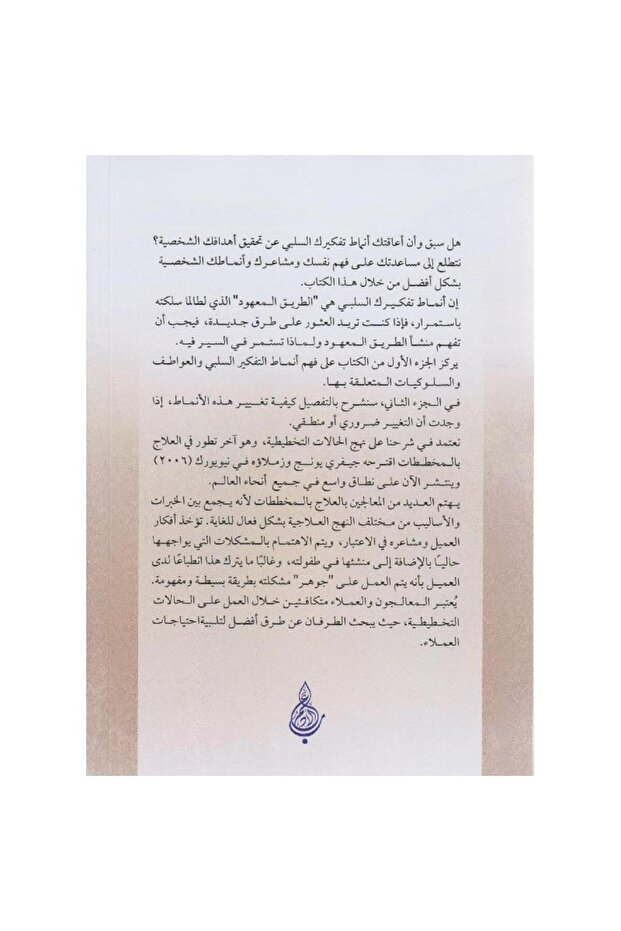 هل سبق وأن أعاقتك أنماط تفكيرك السلبي عن تحقيق أهدافك الشخصية؟
نتطلع إلى مساعدتك على فهم نفسك ومشاعرك وأنماطك الشخصية
بشكل أفضل من خلال هذا الكتاب.
إن أنماط تفكيرك السلبي هي "الطريق المعهود" الذي لطالما سلكته
باستمرار، فإذا كنت تريد العثور على طرق جديدة، فيجب أن
تفهم منشأ الطريق المعهود ولماذا تستمر في السير فيه.
يركز الجزء الأول من الكتاب على فهم أنماط التفكير السلبي والعواطف
والسلوكيات المتعلقة بها.
في الجزء الثاني، سنشرح بالتفصيل كيفية تغيير هذه الأنماط، إذا
وجدت أن التغيير ضروري أو منطقي.
نعتمد في شرحنا على نهج الحالات التخطيطية، وهو آخر تطور في العلاج
بالمخططات اقترحه جيفري يونج وزملاؤه في نيويورك (٢٠٠٦)
وينتشر الآن على نطاق واسع في جميع أنحاء العالم.
يهتم العديد من المعالجين بالعلاج بالمخططات لأنه يجمع بين الخبرات
والأساليب من مختلف النهج العلاجية بشكل فعال للغاية. تؤخذ أفكار
العميل ومشاعره في الاعتبار، ويتم الاهتمام بالمشكلات التي يواجهها
حاليًا بالإضافة إلى منشئها في طفولته، وغالبًا ما يترك هذا انطباعًا لدى
العميل بأنه يتم العمل على "جوهر" مشكلته بطريقة بسيطة ومفهومة.
يُعتبر المعالجون والعملاء متكافئين خلال العمل على الحالات
التخطيطية، حيث يبحث الطرفان عن طرق أفضل لتلبية احتياجات
العملاء.